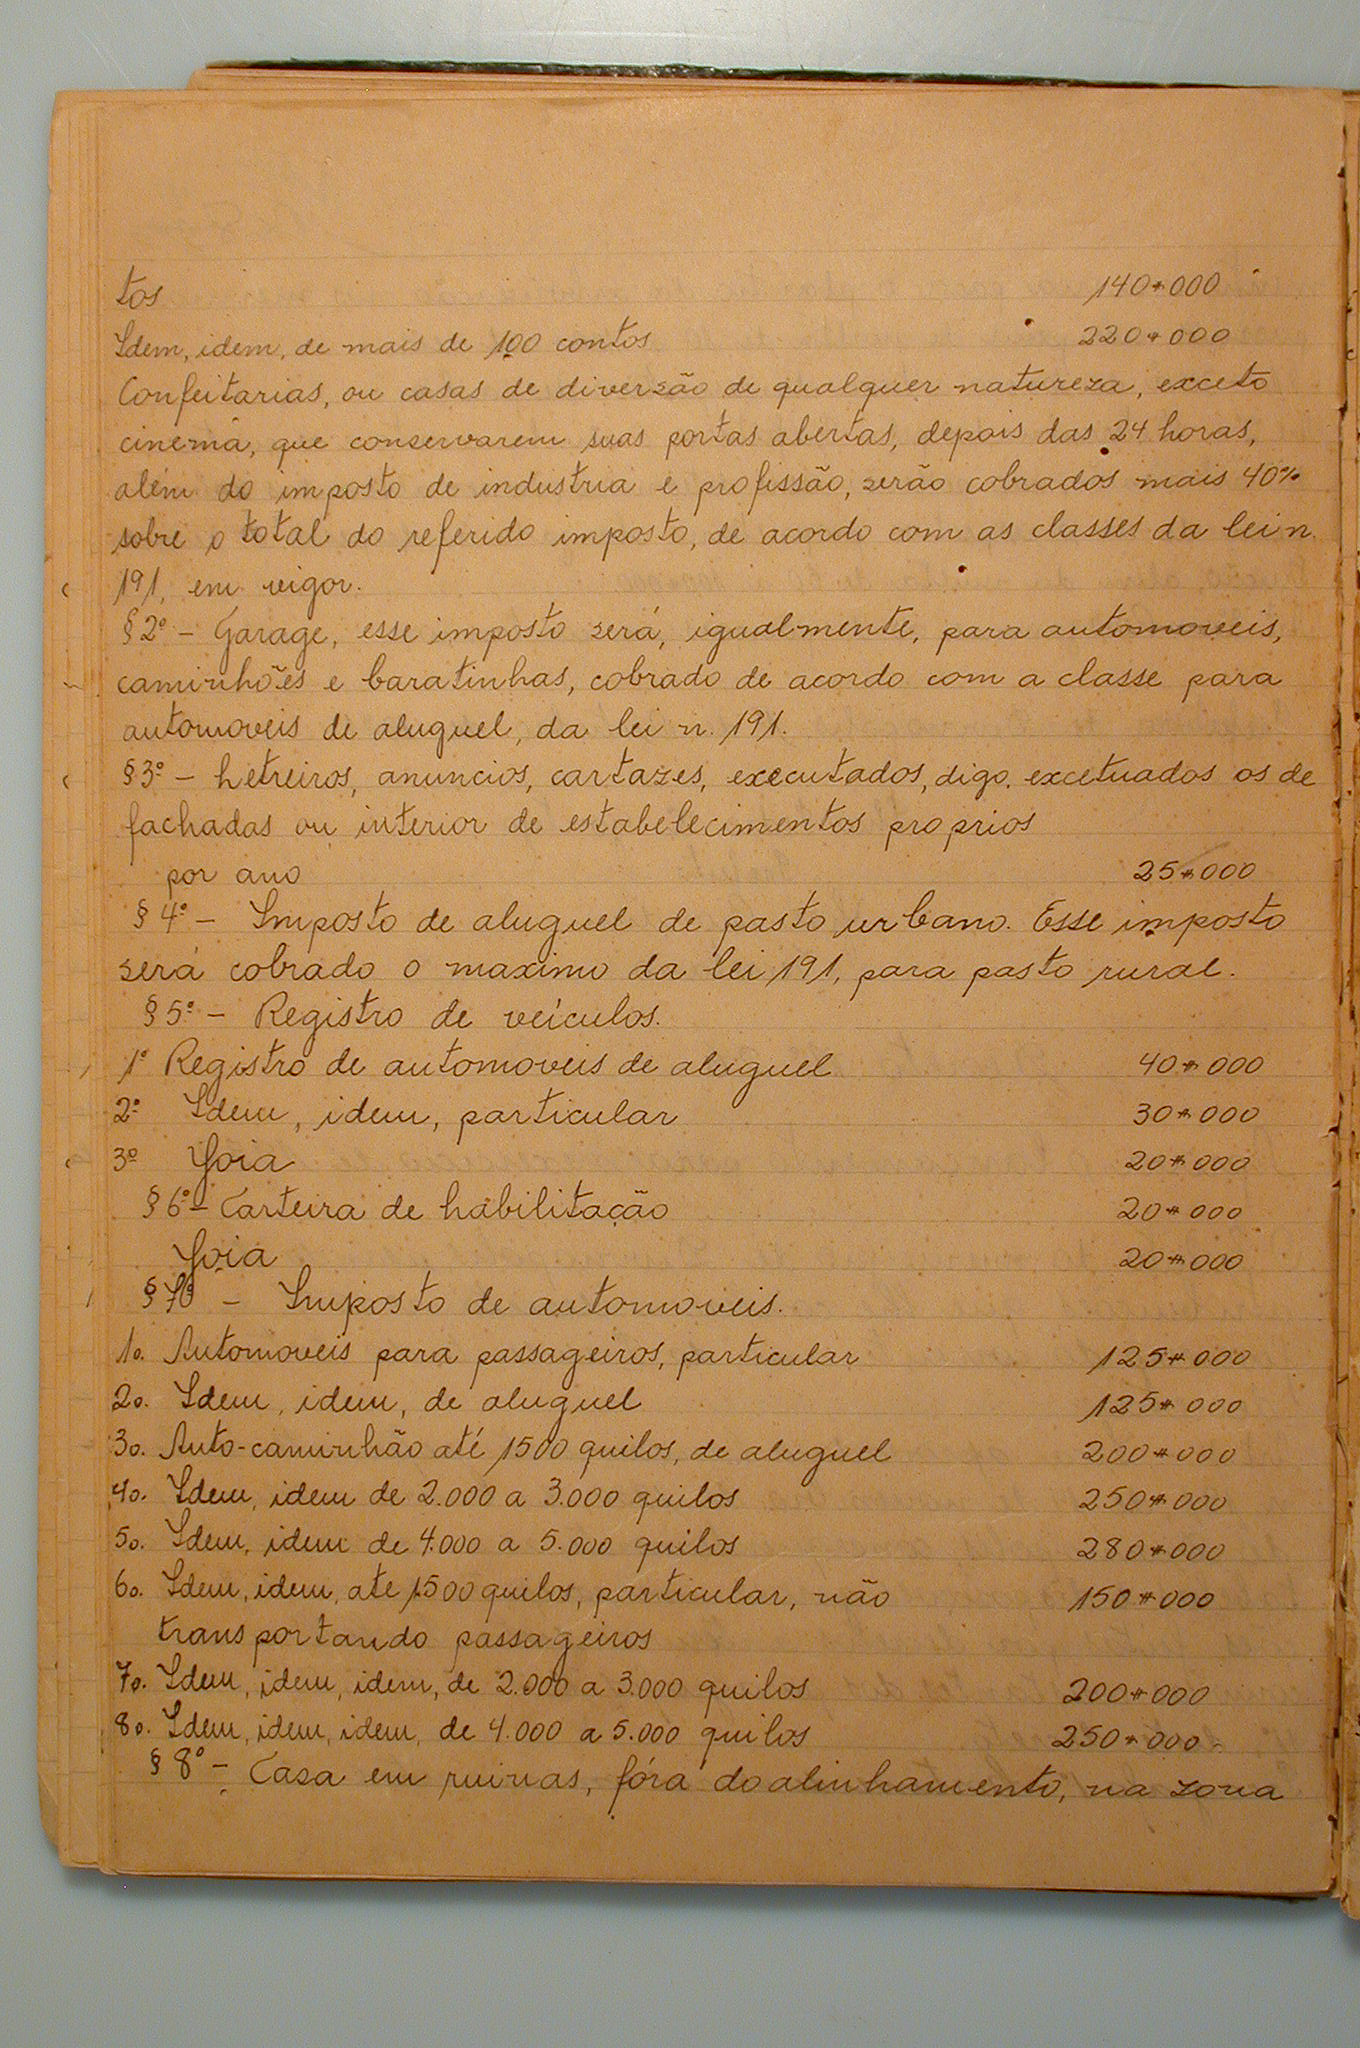 tos 140$000
Idem, idem, de mais de 100 contos 220$000
Confeitarias, ou casas de diversão de qualquer natureza, exceto
cinema, que conservarem suas portas abertas, depois das 24 horas,
além do imposto de industria e profissão, serão cobrados mais 40%
sobre o total do referido imposto, de acordo com as classes da lei n.
191, em vigor.
§ 2º - Garage, esse imposto será, igualmente, para automoveis,
caminhões e baratinhas, cobrado de acordo com a classe para
automoveis de aluguel, da lei n. 191.
§ 3º - Letreiros, anuncios, cartazes, executados, digo, excetuados os de
fachadas ou interior de estabelecimentos proprios
por ano 25$000
§ 4º - Imposto de aluguel de pasto urbano. Esse imposto
será cobrado o maximo da lei 191, para pasto rural.
§ 5º - Registro de veículos.
1º Registro de automoveis de aluguel 40$000
2º Idem, idem, particular 30$000
3º Joia 20$000
§ 6º - Carteira de habilitação 20$000
Joia 20$000
§ 7º - Imposto de automoveis.
1o. Automoveis para passageiros, particular 125$000
2o. Idem, idem, de aluguel 125$000
3o. Auto-caminhão até 1500 quilos, de aluguel 200$000
4o. Idem, idem de 2.000 a 3.000 quilos 250$000
5o. Idem, idem de 4.000 a 5.000 quilos 280$000
6o. Idem, idem, ate 1500 quilos, particular, não 150$000
transportando passageiros
7o. Idem, idem, idem, de 2.000 a 3.000 quilos 200$000
8o. Idem, idem, idem, de 4.000 a 5.000 quilos 250$000
§ 8º - Casa em ruinas, fóra do alinhamento, na zona